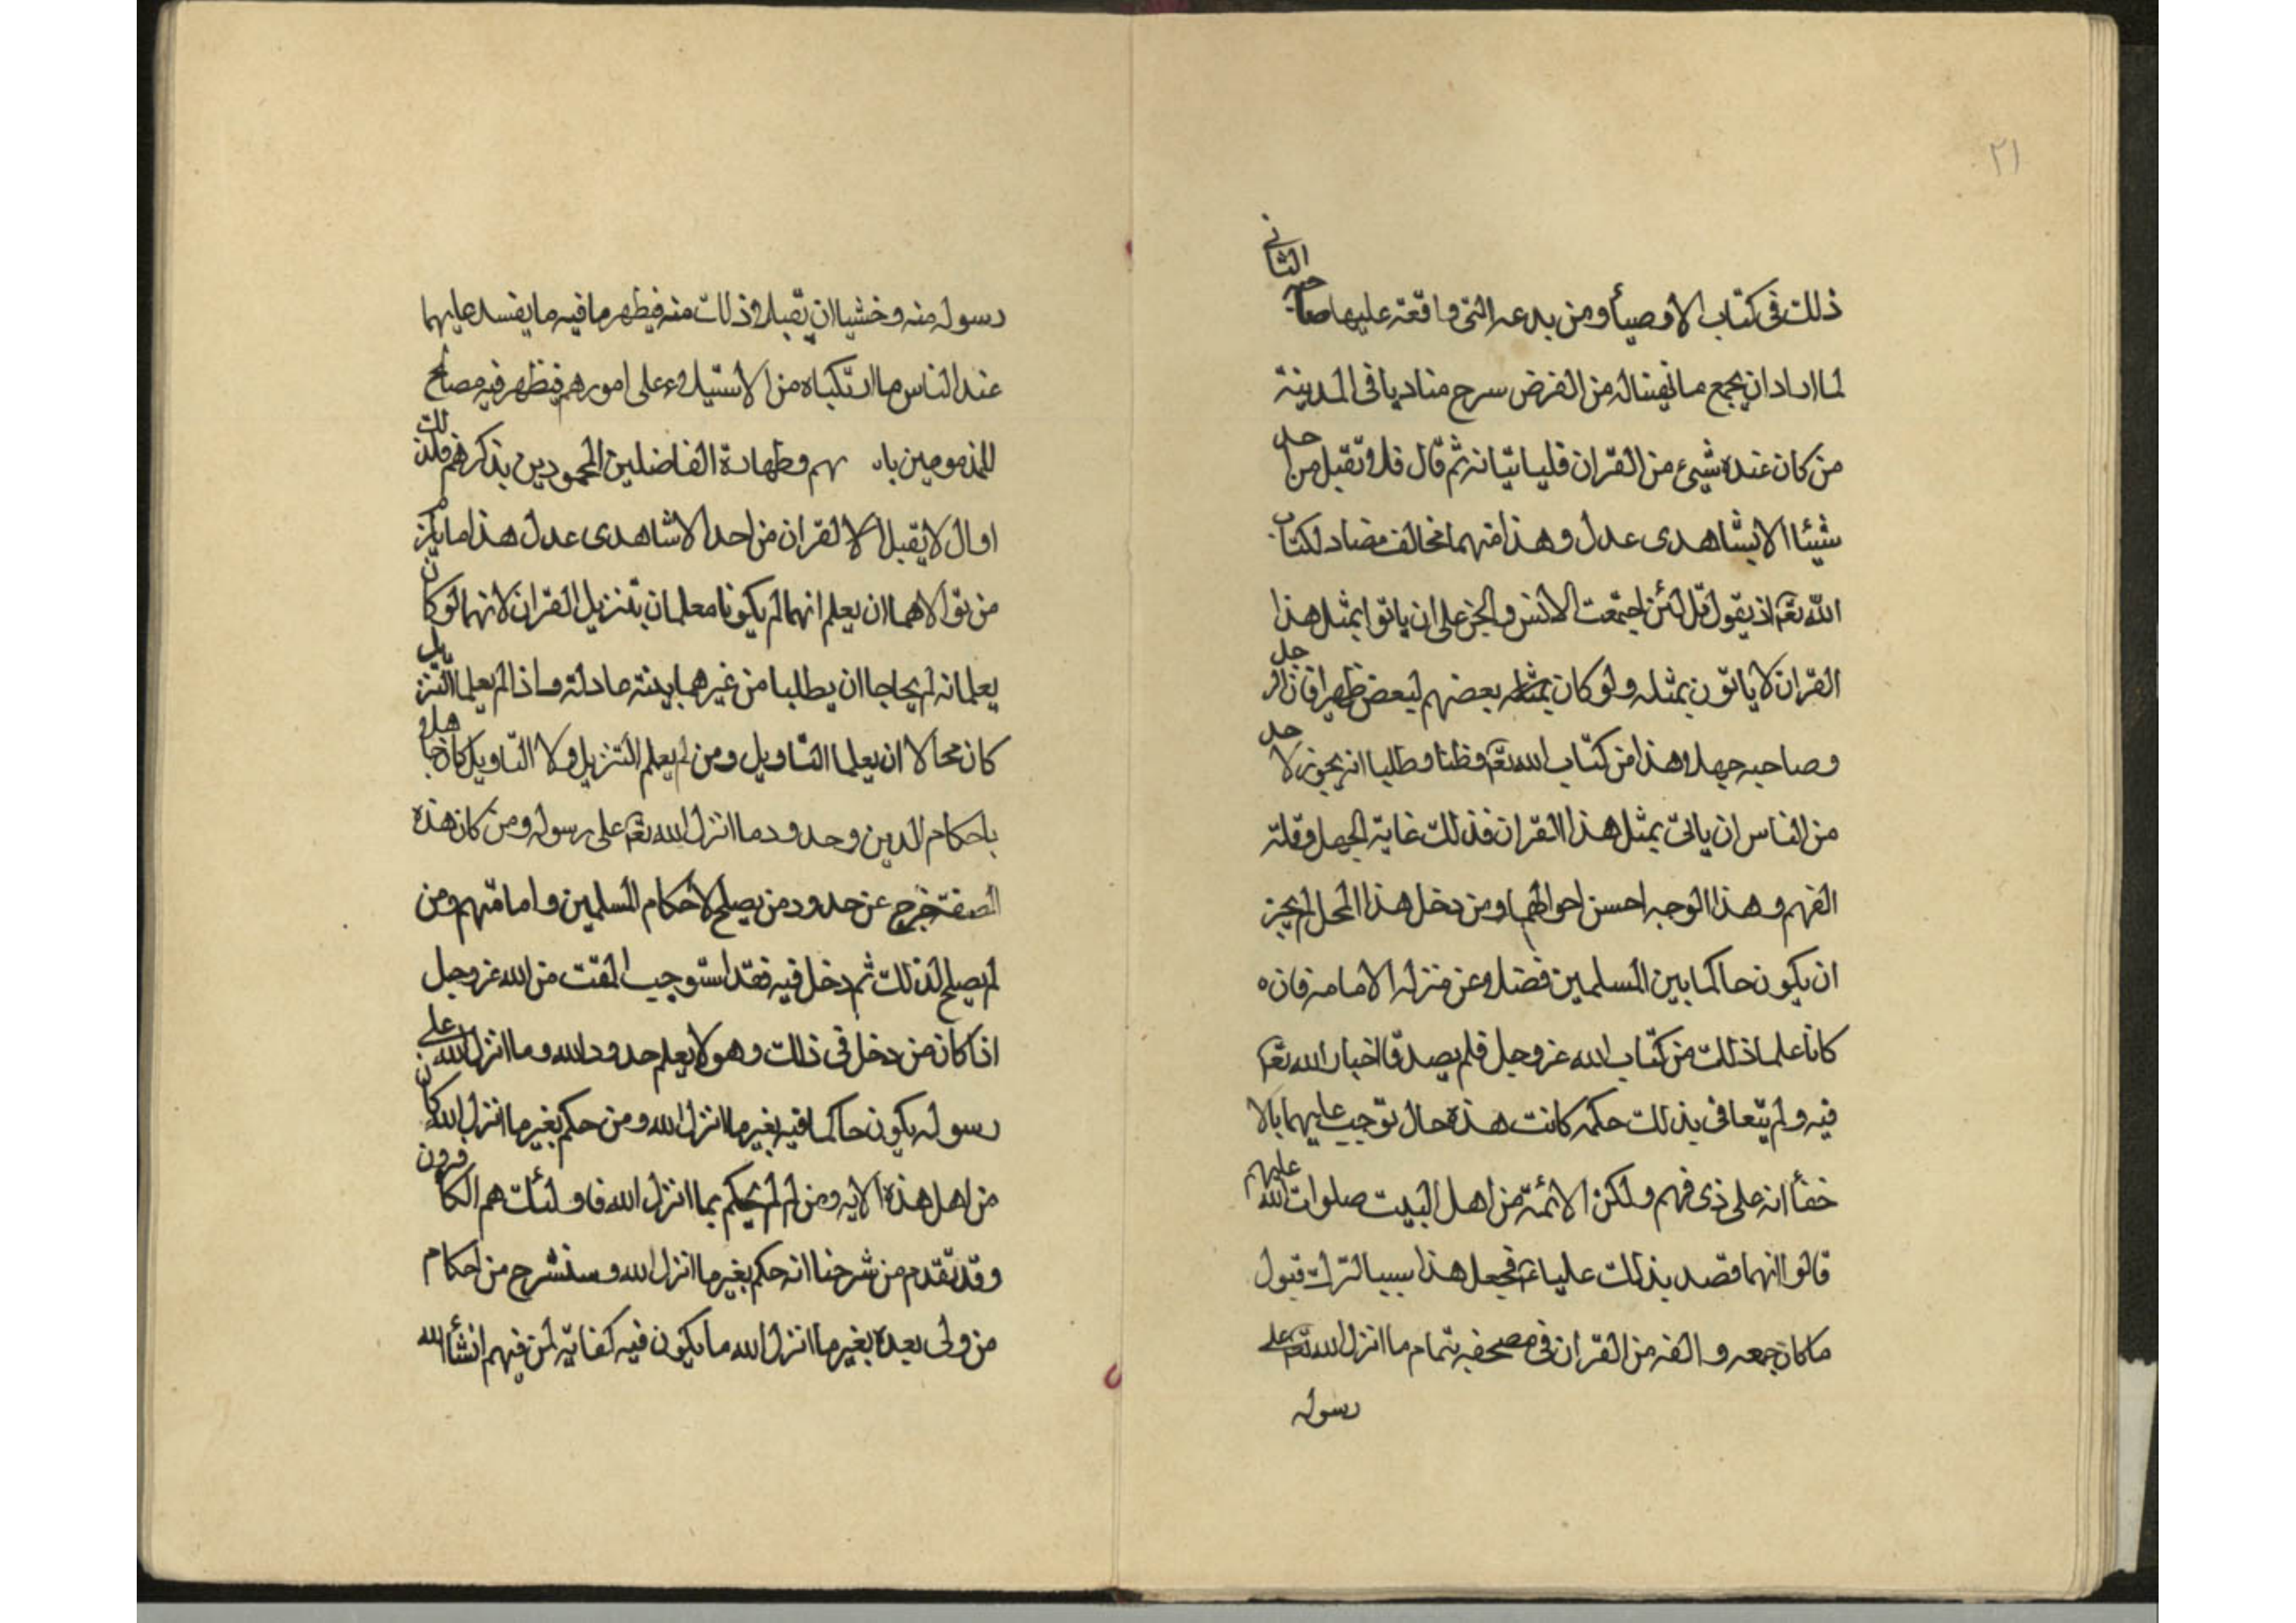 ٢١
ذلك فى كتاب الاوصياء ومن بدعه التى واقعة عليها صاحبه الثانى
لما اراد ان يجمع ما تهيتاله من القرض سرح مناديا فى المدينة
من كان عنده شيىء من القران فلياتيانه ثم قال فلا و تقبل من احد
شيئا الا بشاهدى عدل وهذا منهما مخالف مضاد لكتاب
الله تعم اذ يقول قل لئن اجتمعت الانس والجن على ان ياتوا بمثل هذا
القران لا ياتون بمثله ولو كان بعضهم لبعض ظهيرا فان الرجل
وصاحبه جهلا وهذا من كتاب الله تعم وظنا وطلبا انه يجوز لاحد
من الناس ان ياتى بمثل هذا القران فذلك غاية الجهل وقلة
الفهم وهذا الوجه احسن احوالهما ومن دخل هذا المحل لم يجز
ان يكون حاكما بين المسلمين فضلا عن منزلة الامامة فان ه
كانا علما ذلك من كتاب الله عز وجل فلم يصدقا اخبار الله تعم
فيه ولم يتعافى بذلك حكمه كانت هذه حال توجب عليهما بالا
خفأ انه على ذى فهم ولكن الائمة من اهل البيت صلوات الله عليهم
قالوا انهما قصد بذلك عليا ع فجعل هذا سببا لترك قبول
ما كان جمعه والفه من القران فى مصحفه بتمام ما انزل الله تعم على
رسوله
رسوله منه وخشيا ان يقبلا ذلك منه فيظهر ما فيه ما يفسد عليهما
عند الناس ما ارتكباه من الاستيلاء على امورهم فيظهر فيه مصالح
للمذمومين با هم وطهارة الفاضلين المحمودين بذكرهم فلذلك
او ال لا يقبل الا القران من احد الا شاهدى عدل هذا ما يلزم
من تولاهما ان يعلم انهما لم يكونا معلمان بتنزيل القران لانهما لو كان
يعلمانه لم يحاجا ان يطلبا من غيرهما ببينة عادلة واذا لم يعلما التنزيل
كان محالا ان يعلما التاويل ومن لم يعلم التنزيل ولا التاويل كان جاهلا
باحكام الدين وحدود ما انزل الله تعم على رسوله ومن كان هذه
الصفة خرج عن حدود من يصلح لاحكام المسلمين وامامتهم ومن
لم يصلح لذلك ثم دخل فيه فقد استوجب المقت من الله عز وجل
اذا كان من دخل فى ذلك وهو لا يعلم حدود الله وما انزل الله على
رسوله يكون حاكما فيه بغير ما انزل الله ومن حكم بغير ما انزل الله كان
من اهل هذه الايه ومن لم يحكم بما انزل الله فاولئك هم الكافرون
وقد تقدم من شرحنا انه حكم بغير ما انزل الله وسنشرح من احكام
من ولى بعده بغير ما انزل الله ما يكون فيه كفاية لمن فهم انشأ الله